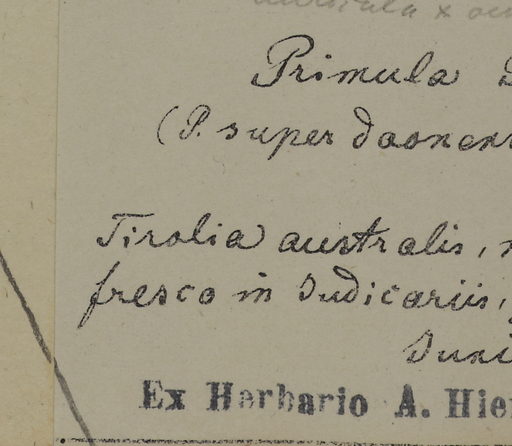 Primula
(P. super daonens
Tirolia australis,
fresco in Judicariis,
Juni
Ex Herbario A. Hier